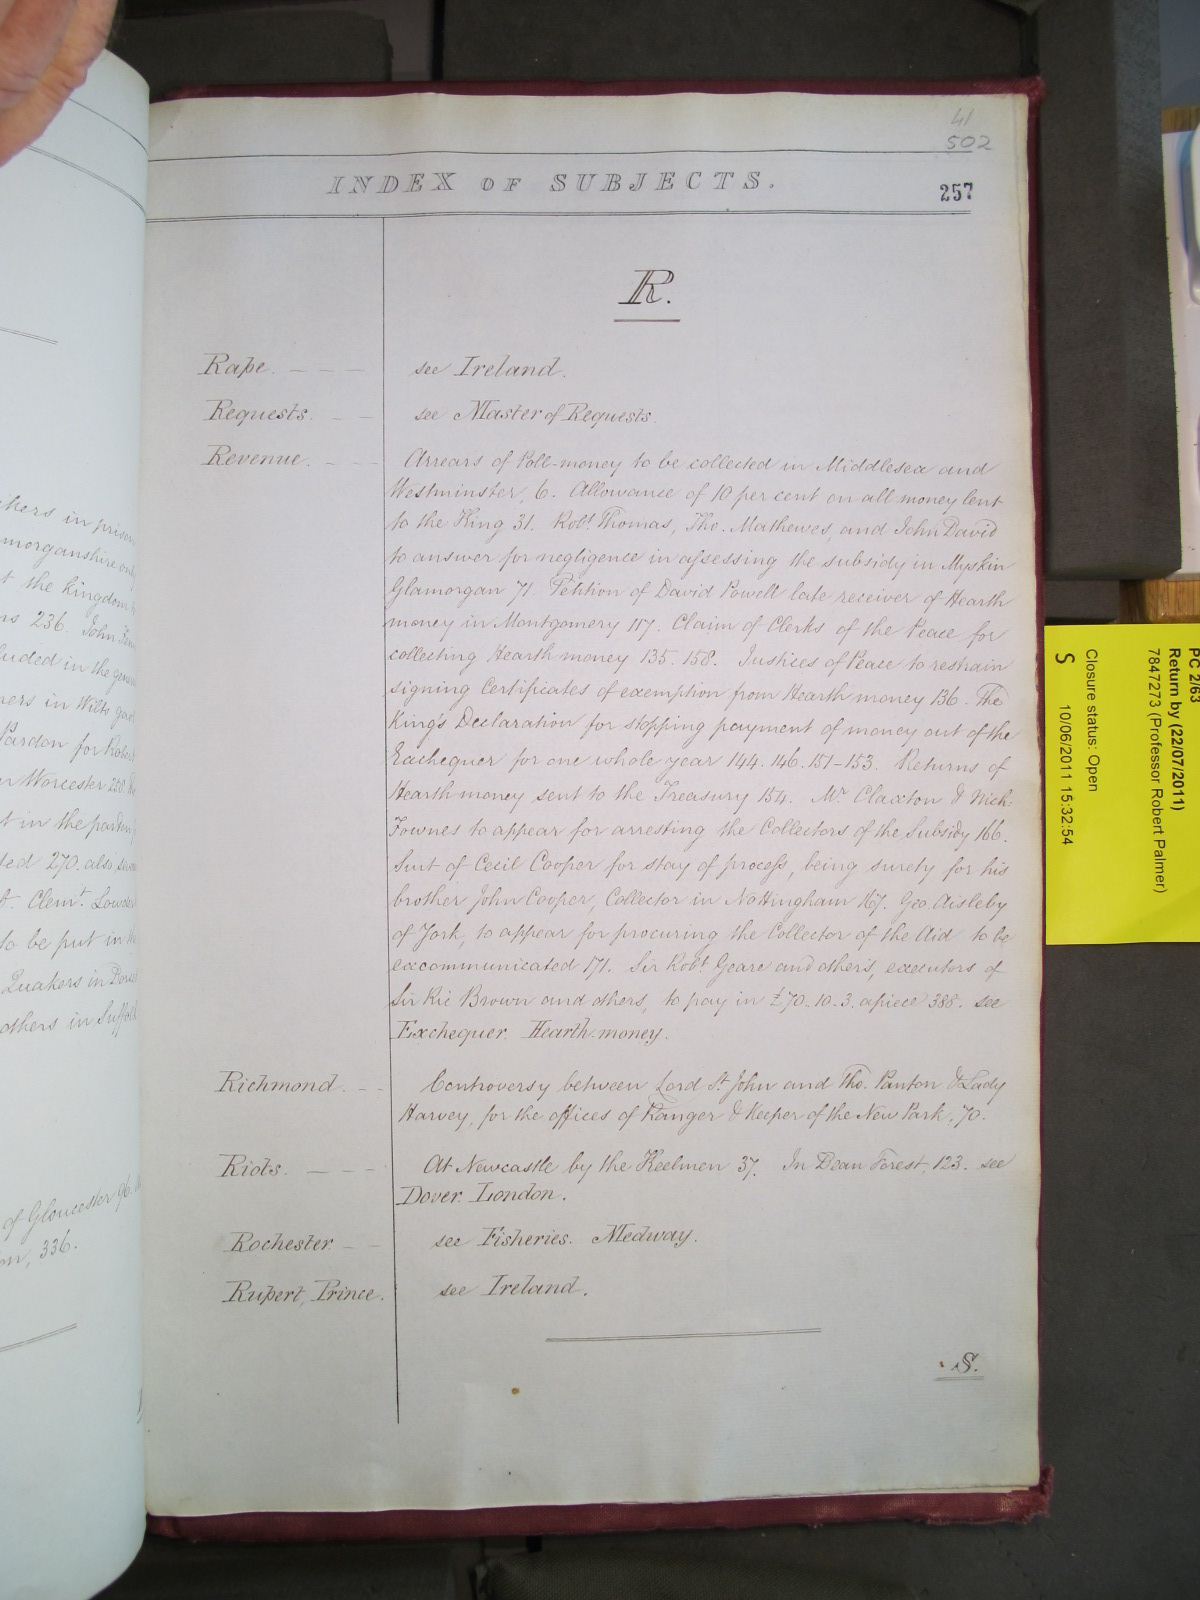 41
502
INDEX OF SUBJECTS.
257
R.
Rape. — — — see Ireland.
Requests. — — see Master of Requests.
Revenue. — — Arrears of Poll-money to be collected in Middlesex and
Westminster, 6. Allowance of 10 per cent on all money lent
to the King 31. Robt. Thomas, Tho. Mathewes, and John David
to answer for negligence in assessing the subsidy in Myskin
Glamorgan 71. Petition of David Powell late receiver of Hearth
money in Montgomery 117. Claim of Clerks of the Peace for
collecting Hearth money 135. 158. Justices of Peace to restrain
signing Certificates of exemption from Hearth money 136. The
King's Declaration for stopping payment of money out of the
Exchequer for one whole year 144. 146. 151–153. Returns of
Hearth money sent to the Treasury 154. Mr. Claxton & Nich:
Fownes to appear for arresting the Collectors of the Subsidy 166.
Suit of Cecil Cooper for stay of process, being surety for his
brother John Cooper, Collector in Nottingham 167. Geo. Aisleby
of York, to appear for procuring the Collector of the Aid to be
excommunicated 171. Sir Robt. Geare and others, executors of
Sir Ric Brown and others, to pay in £70.10.3. apiece 388. see
Exchequer. Hearth-money.
Richmond. — — Controversy between Lord St. John and Tho. Panton & Lady
Harvey, for the offices of Ranger & Keeper of the New Park, 70.
Riots. — — — At Newcastle by the Keelmen 37. In Dean Forest, 123. see
Dover. London.
Rochester — — see Fisheries. Medway.
Rupert, Prince. see Ireland.
S.
kers in prison
morganshire
t the kingdom
ns 236. John
luded in the
ners in Wilts
Pardon for
Worcester
t in the
ted 270. also
Clemt.
to be put in
Quakers in
others in Suffolk
of Gloucester 96.
336.
PC 2/63
Return by (22/07/2011)
7847273 (Professor Robert Palmer)
Closure status: Open
S 10/06/2011 15:32:54